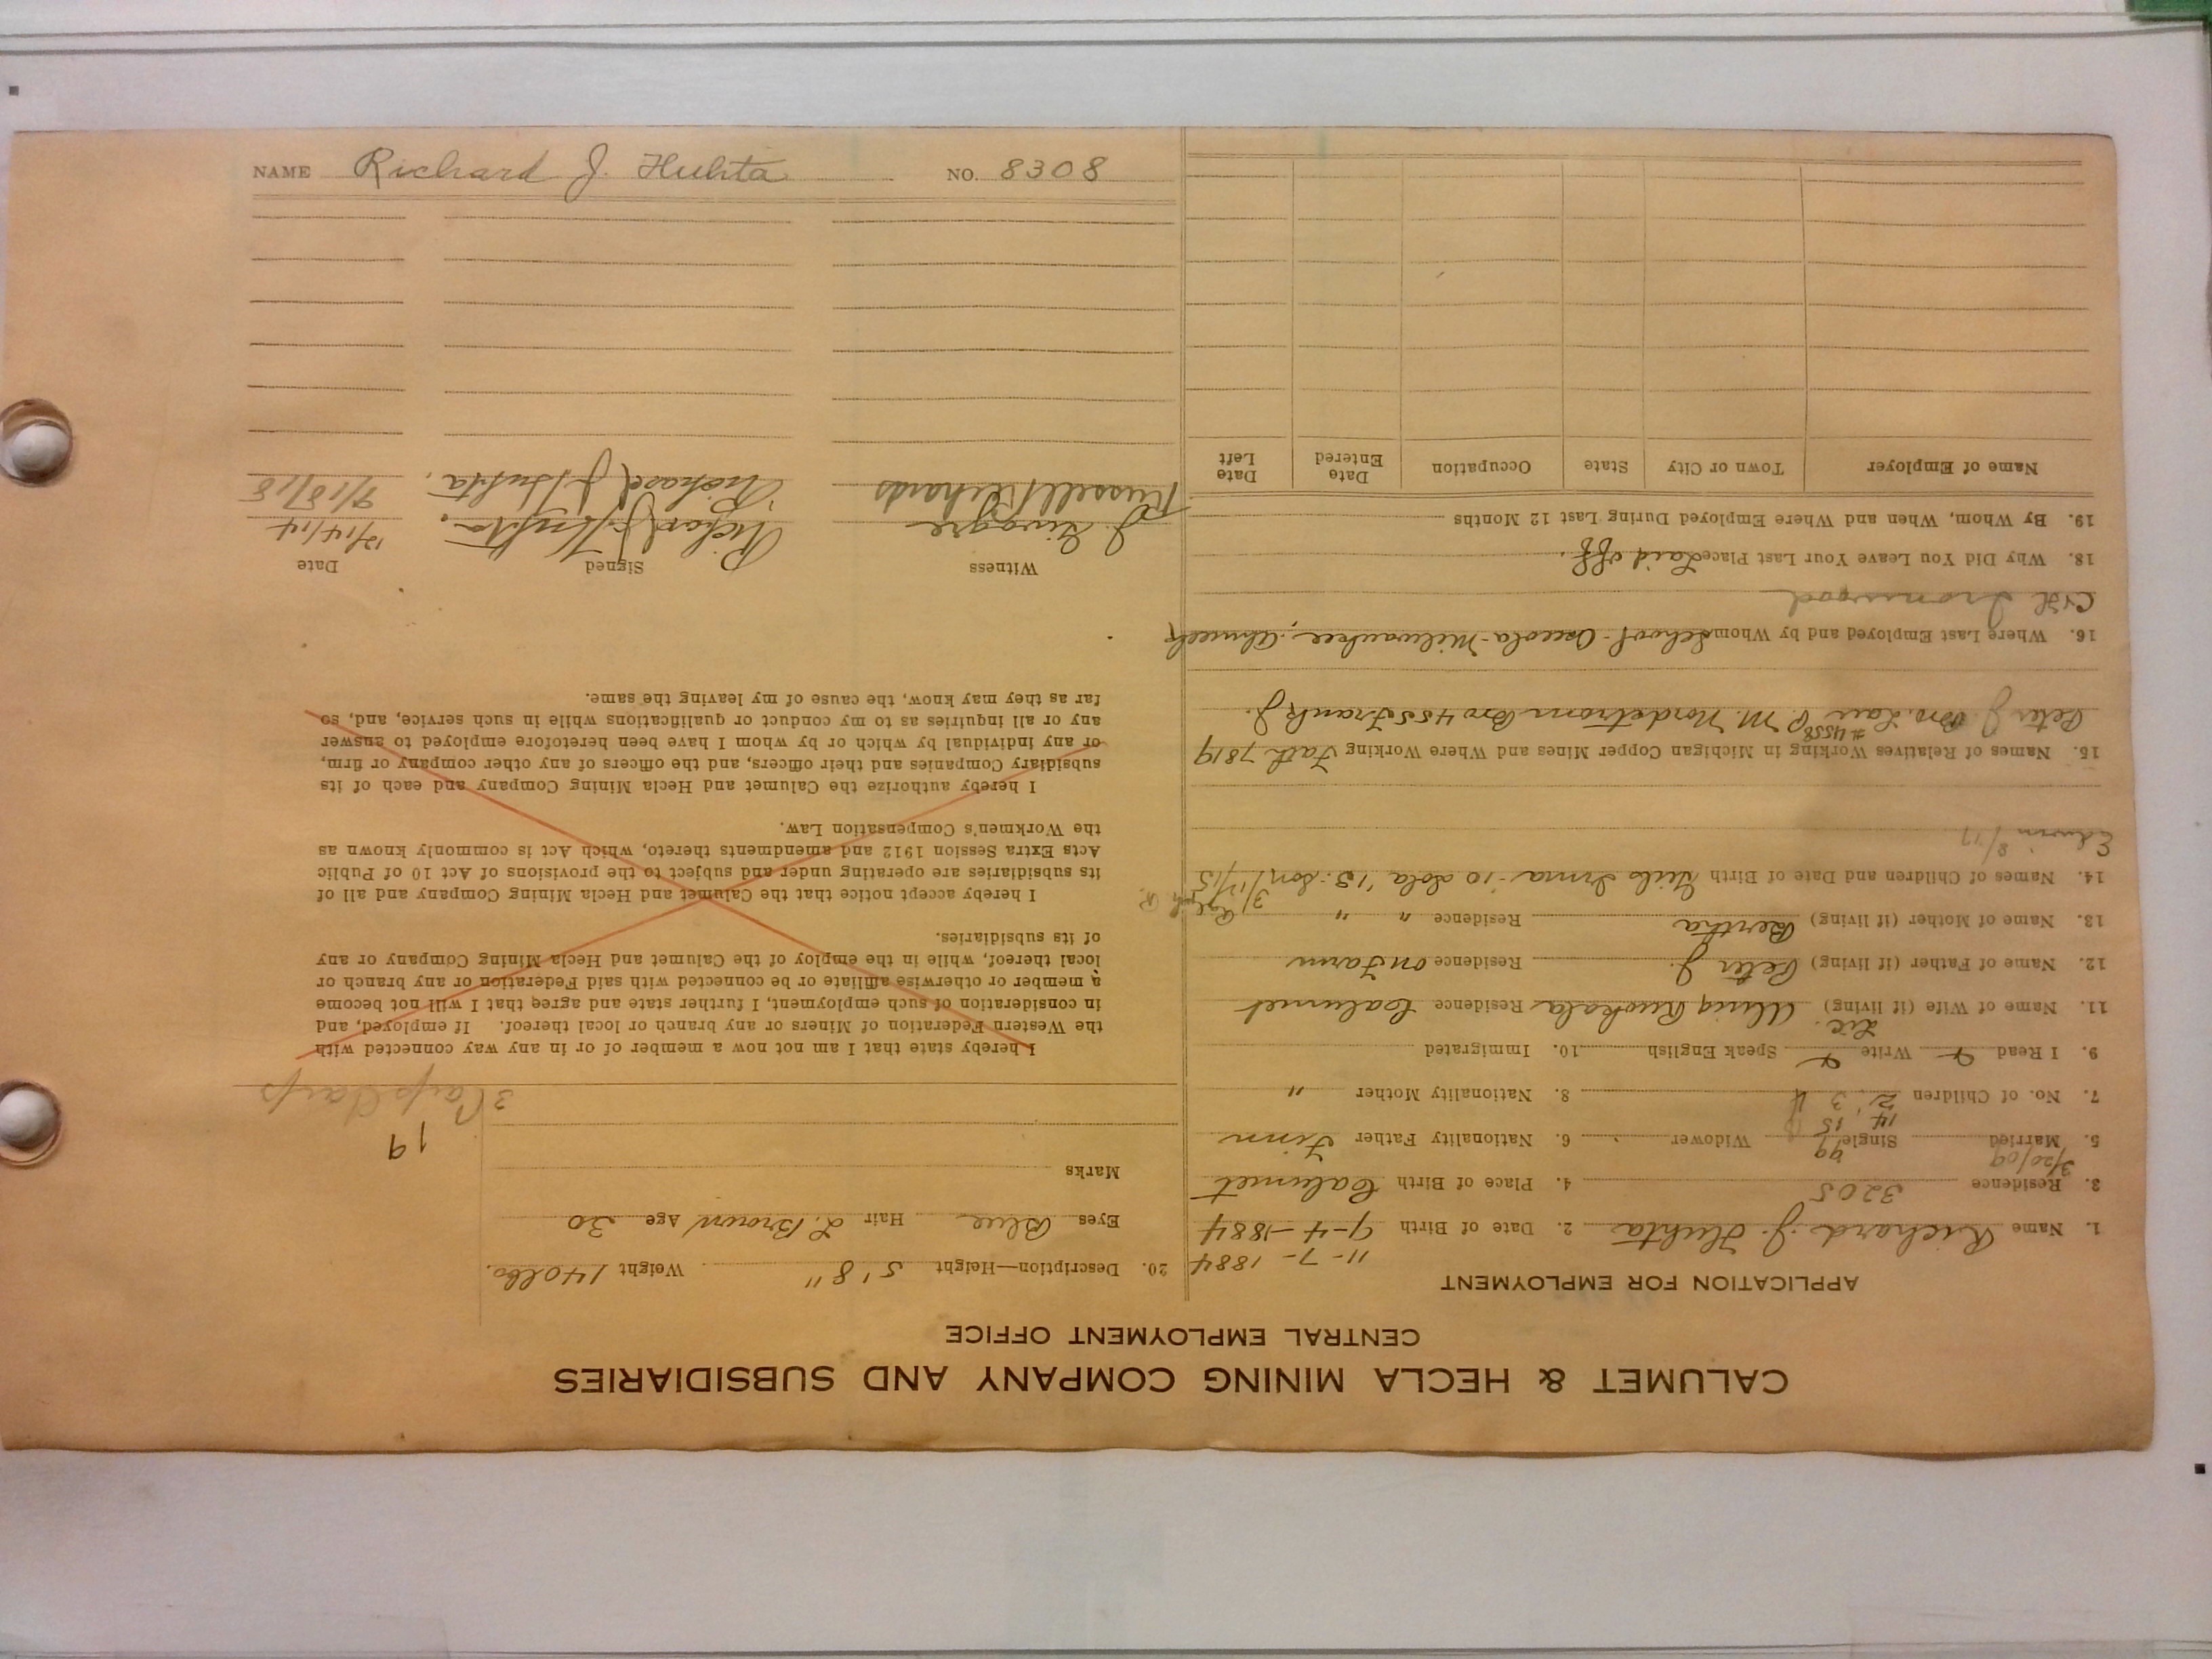 NAME Richard J. Huhta NO. 8308
CALUMET & HECLA MINING COMPANY AND SUBSIDIARIES
CENTRAL EMPLOYMENT OFFICE
APPLICATION FOR EMPLOYMENT
11-7-1884
1. Name Richard J. Huhta 2. Date of Birth 9-4-1884
3. Residence 3205 4. Place of Birth Calumet
3/20/09
5. Married Single Widower 6. Nationality Father Finn
14 15
7. No. of Children 2 3 4 8. Nationality Mother "
9. I Read Write Speak English 10. Immigrated
11. Name of Wife (if living) Residence Calumet
12. Name of Father (if living) Peter J. Residence on Farm
13. Name of Mother (if living) Bertha Residence " "
14. Names of Children and Date of Birth Irma '10 Lola '13: Son 3/17/15 Ralph R.
Edwin 8/17
15. Names of Relatives Working in Michigan Copper Mines and Where Working Fath 7819
#4558
Peter J. Bro. Law P. M. Nordstrom Bro 455 Frank J.
16. Where Last Employed and by Whom School - Osceola - Milwaukee, Ahmeek
C&H Ironwood
18. Why Did You Leave Your Last Place Laid off.
19. By Whom, When and Where Employed During Last 12 Months
Name of Employer Town or City State Occupation Date Entered Date Left
20. Description—Height 5' 8" Weight 140 lbs.
Eyes Blue Hair L. Brown Age 30
Marks
19
3
I hereby state that I am not now a member of or in any way connected with
the Western Federation of Miners or any branch or local thereof. If employed, and
in consideration of such employment, I further state and agree that I will not become
a member or otherwise affiliate or be connected with said Federation or any branch or
local thereof, while in the employ of the Calumet and Hecla Mining Company or any
of its subsidiaries.
I hereby accept notice that the Calumet and Hecla Mining Company and all of
its subsidiaries are operating under and subject to the provisions of Act 10 of Public
Acts Extra Session 1912 and amendments thereto, which Act is commonly known as
the Workmen's Compensation Law.
I hereby authorize the Calumet and Hecla Mining Company and each of its
subsidiary Companies and their officers, and the officers of any other company or firm,
or any individual by which or by whom I have been heretofore employed to answer
any or all inquiries as to my conduct or qualifications while in such service, and, so
far as they may know, the cause of my leaving the same.
Witness Signed Date
J. Richard J. Huhta. 12/14/14
Russell Richards Richard J Huhta. 9/18/18